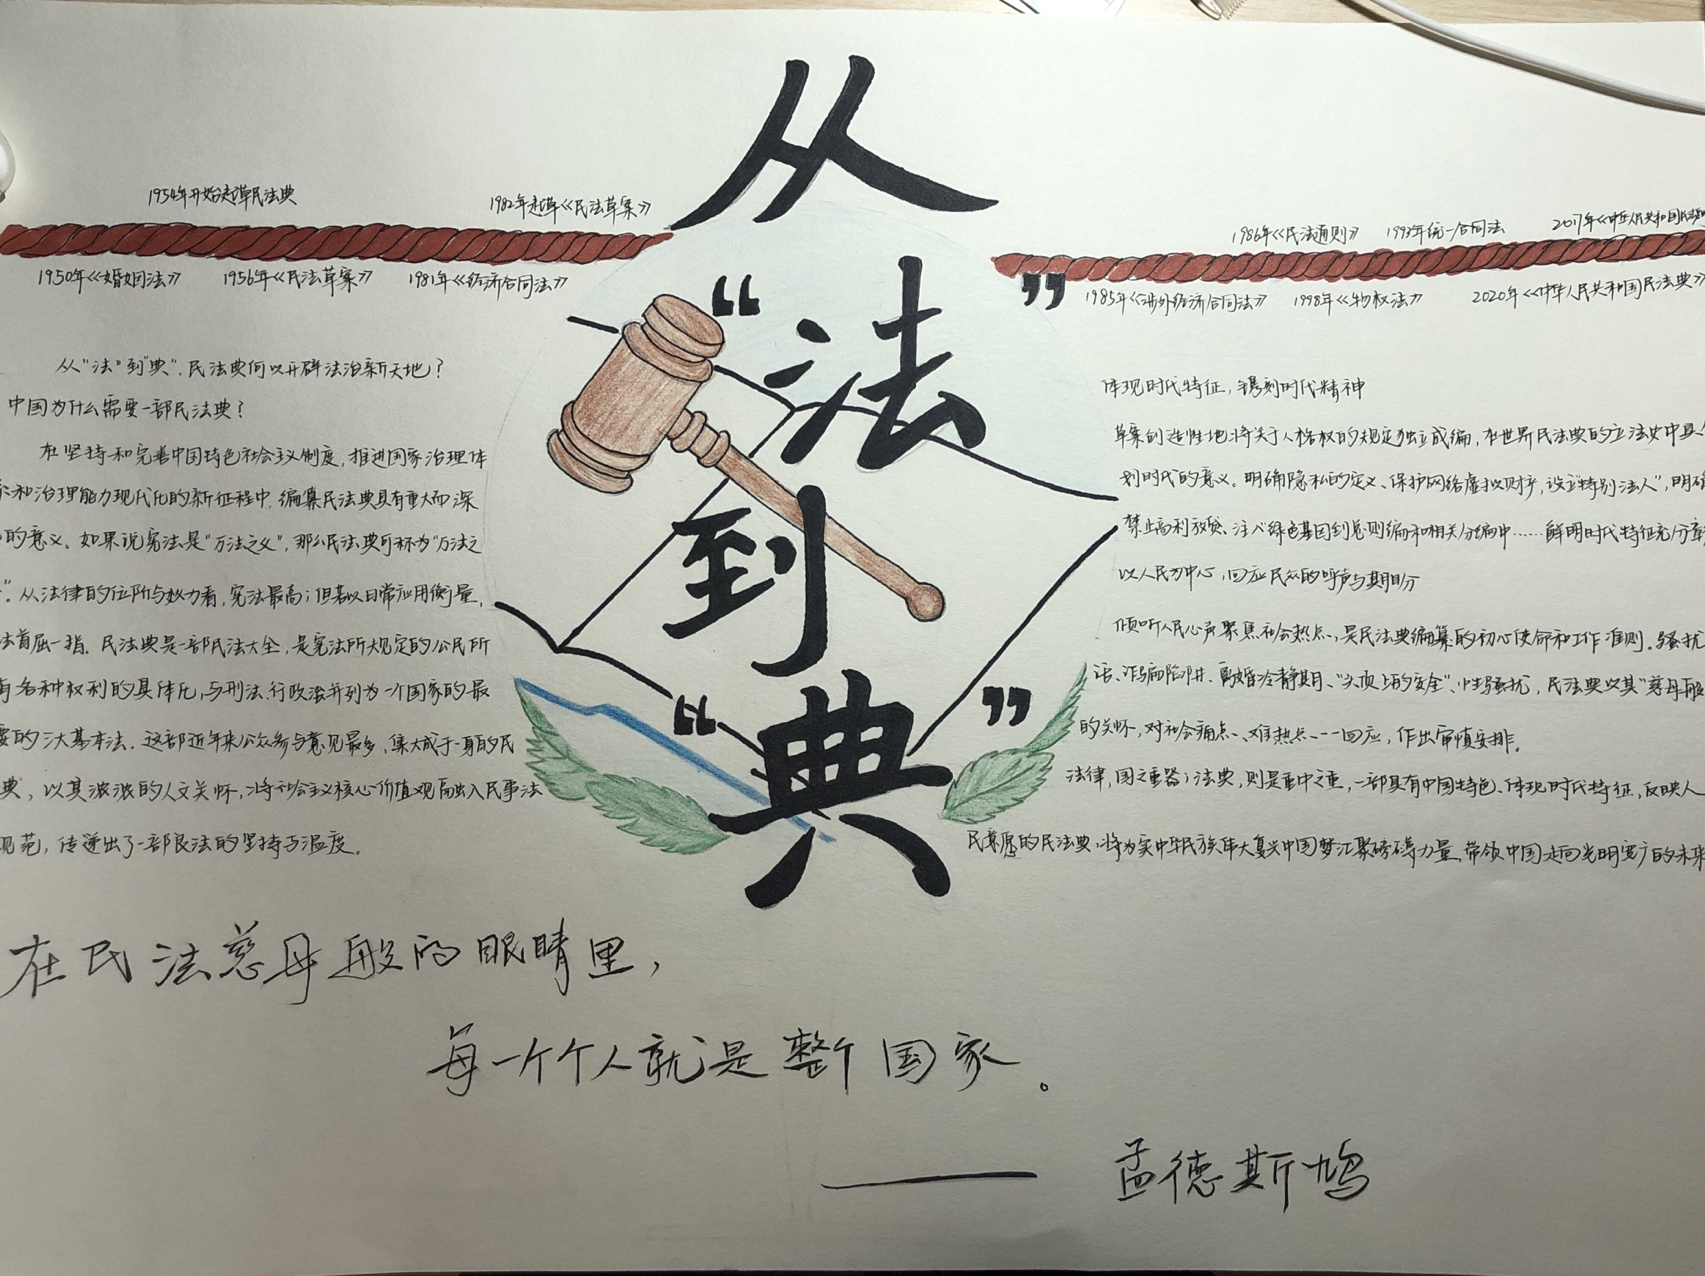 从
“法”
到
“典”
1954年开始起草民法典
1982年起草《民法草案》
1950年《婚姻法》
1956年《民法草案》
1981年《经济合同法》
1986年《民法通则》
1993年统一合同法
2017年《中华人民共和国民法
1985年《涉外经济合同法》
1998年《物权法》
2020年《中华人民共和国民法典》
从“法”到“典”,民法典何以开辟法治新天地?
中国为什么需要一部民法典?
在坚持和完善中国特色社会主义制度,推进国家治理体
和治理能力现代化的新征程中,编纂民法典具有重大而深
的意义。如果说宪法是“万法之父”,那么民法典可称为“万法之
”。从法律的位阶与效力看,宪法最高;但若以日常应用衡量,
法首屈一指。民法典是一部民法大全,是宪法所规定的公民所
有各种权利的具体化,与刑法、行政法并列为一个国家的最
要的三大基本法。这部近年来公众参与意见最多,集大成于一身的民
典,以其浓浓的人文关怀,将社会主义核心价值观融入民事法
规范,传递出了一部良法的坚持与温度。
体现时代特征,镌刻时代精神
草案创造性地将关于人格权的规定独立成编,在世界民法典的立法史中具
划时代的意义。明确隐私的定义、保护网络虚拟财产,设立“特别法人”,明确
禁止高利放贷、注入绿色基因到总则编和相关分编中……鲜明时代特征充分
以人民为中心,回应民众的呼声与期盼
倾听人民心声聚焦社会热点,是民法典编纂的初心使命和工作准则。骚扰
话、诈骗陷阱、离婚冷静期、“头顶上的安全”、性骚扰,民法典以其“慈母般
的关怀,对社会痛点、难点热点一一回应,作出审慎安排。
法律,国之重器;法典,则是重中之重,一部具有中国特色、体现时代特征,反映人
民意愿的民法典,将为实中华民族伟大复兴中国梦汇聚磅礴力量,带领中国走向光明宽广的未来
在民法慈母般的眼睛里,
每一个个人就是整个国家。
—— 孟德斯鸠